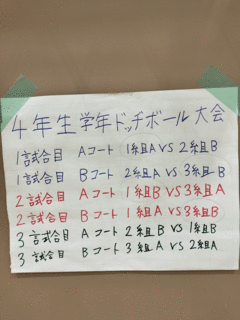 4年生学年ドッチボール大会
1試合目 Aコート 1組A VS 2組B
1試合目 Bコート 2組A VS 3組B
2試合目 Aコート 1組B VS 3組A
2試合目 Bコート 1組A VS 3組B
3試合目 Aコート 2組B VS 1組B
3試合目 Bコート 3組A VS 2組A